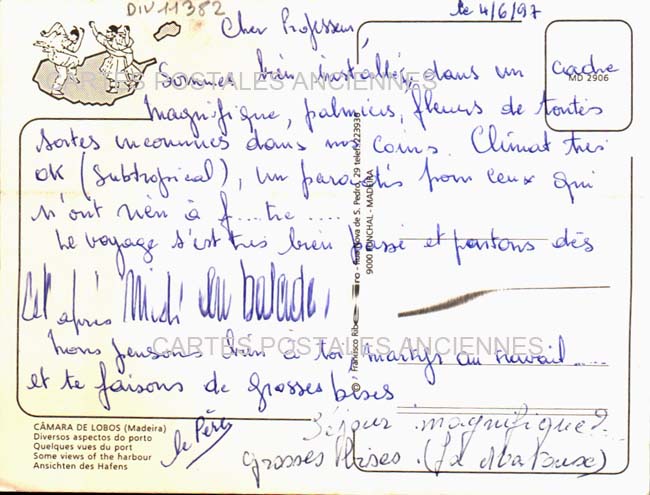 DIV11382
le 4/6/97
Cher Professeur,
Sommes bien installés, dans un cadre
MD 2906
CARTES POSTALES ANCIENNES
magnifique, palmiers, fleurs de toutes
sortes inconnues dans nos coins. Climat très
OK (Subtropical), un paradis pour ceux qui
n'ont rien à f....tre .....
Le voyage s'est très bien passé et partons dès
cet après Midi en balade,
CARTES POSTALES ANCIENNES
nous pensons bien à toi, martyr au travail .....
et te faisons de grosses bises
le Père
Séjour magnifique
grosses bises.
CÂMARA DE LOBOS (Madeira)
Diversos aspectos do porto
Quelques vues du port
Some views of the harbour
Ansichten des Hafens
© Francisco Ribeiro - Rua Nova de S. Pedro, 29 telef. 223930
9000 FUNCHAL - MADEIRA